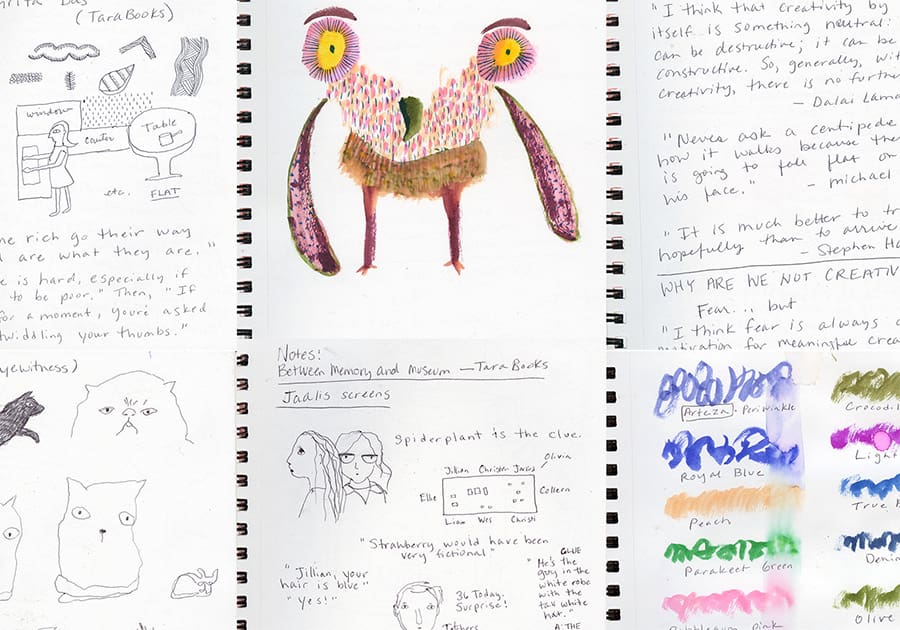 (Tara Books)
window
counter
Table
etc.
FLAT
rich go their way
are what they are."
is hard, especially if
to be poor." Then, "If
for a moment, you're asked
twiddling your thumbs."
"I think that creativity by
itself is something neutral:
can be destructive; it can be
constructive. So, generally,
creativity, there is no
— Dalai Lama
"Never ask a centipede
how it walks because
is going to fall flat on
his face." - michael
"It is much better to
hopefully than to arrive
- Stephen
WHY ARE WE NOT
Fear... but
"I think fear is always
for meaningful
Notes:
Between Memory and Museum — Tara Books
Jaalis screens
Spiderplant is the clue.
Olivia
Jillian Christen James
Elle
Colleen
Liam Wes Christi
"Strawberry would have been
very fictional"
"Jillian, your
hair is blue"
"Yes!"
36 Today.
Surprise!
GLUE
"He's the
guy in the
white robe
with the
tall white
hat."
A: THE
Arteza · Periwinkle
Royal Blue
Peach
Parakeet Green
Bubblegum Pink
Olive